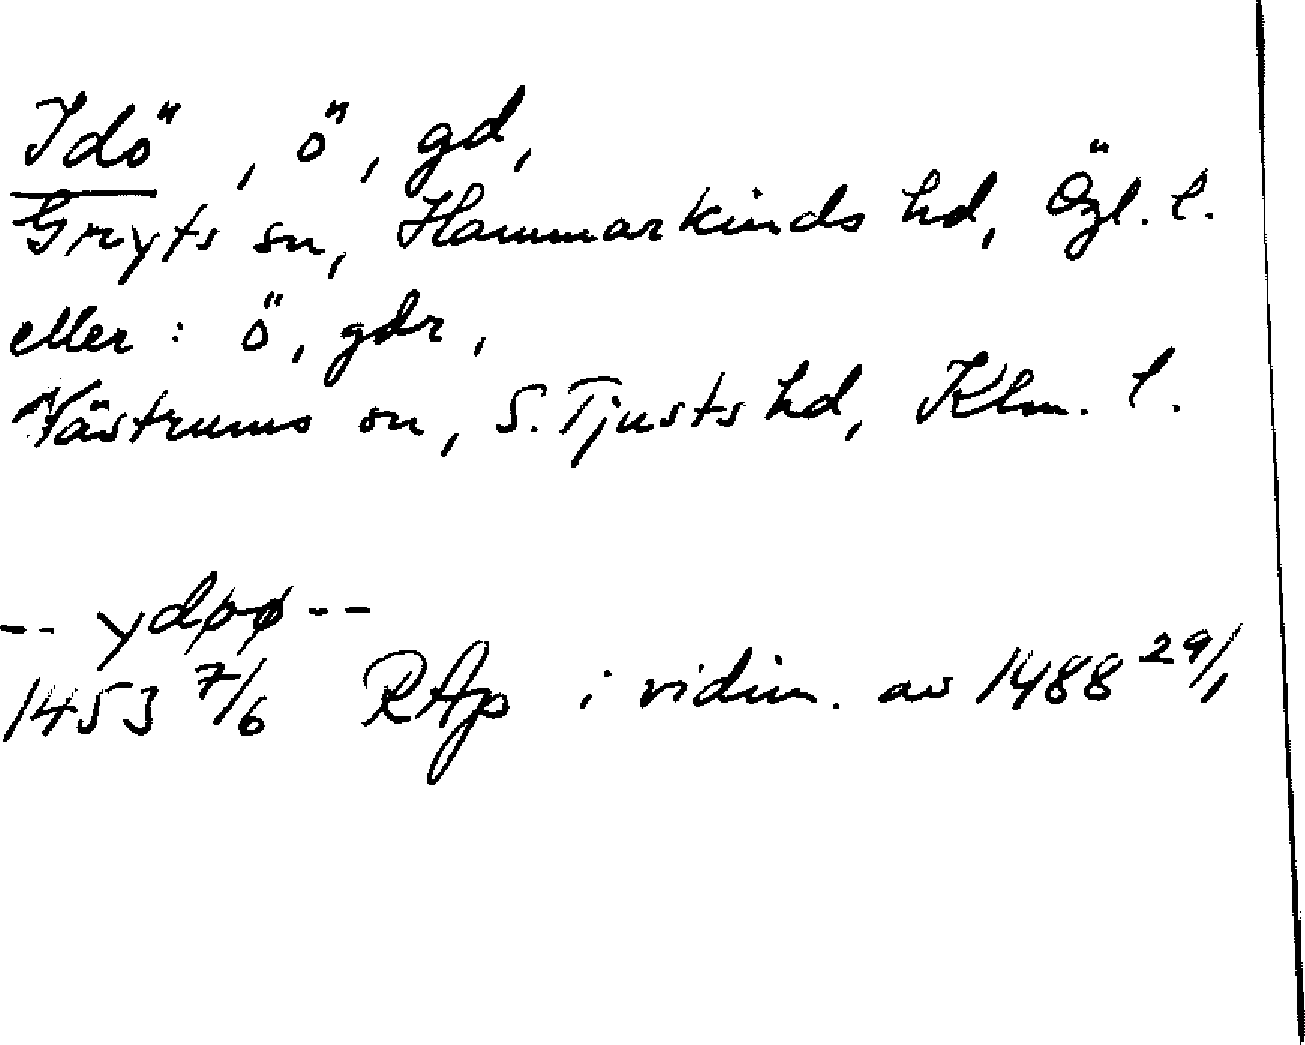 Idö, ö, gd,
Gryts sn, Hammarkinds hd, Ögl. l.
eller: ö, gdr,
Västrums sn, S. Tjusts hd, Klm. l.
-- ydøø --
1453 7/6 RAp i vidim. av 1488 29/1